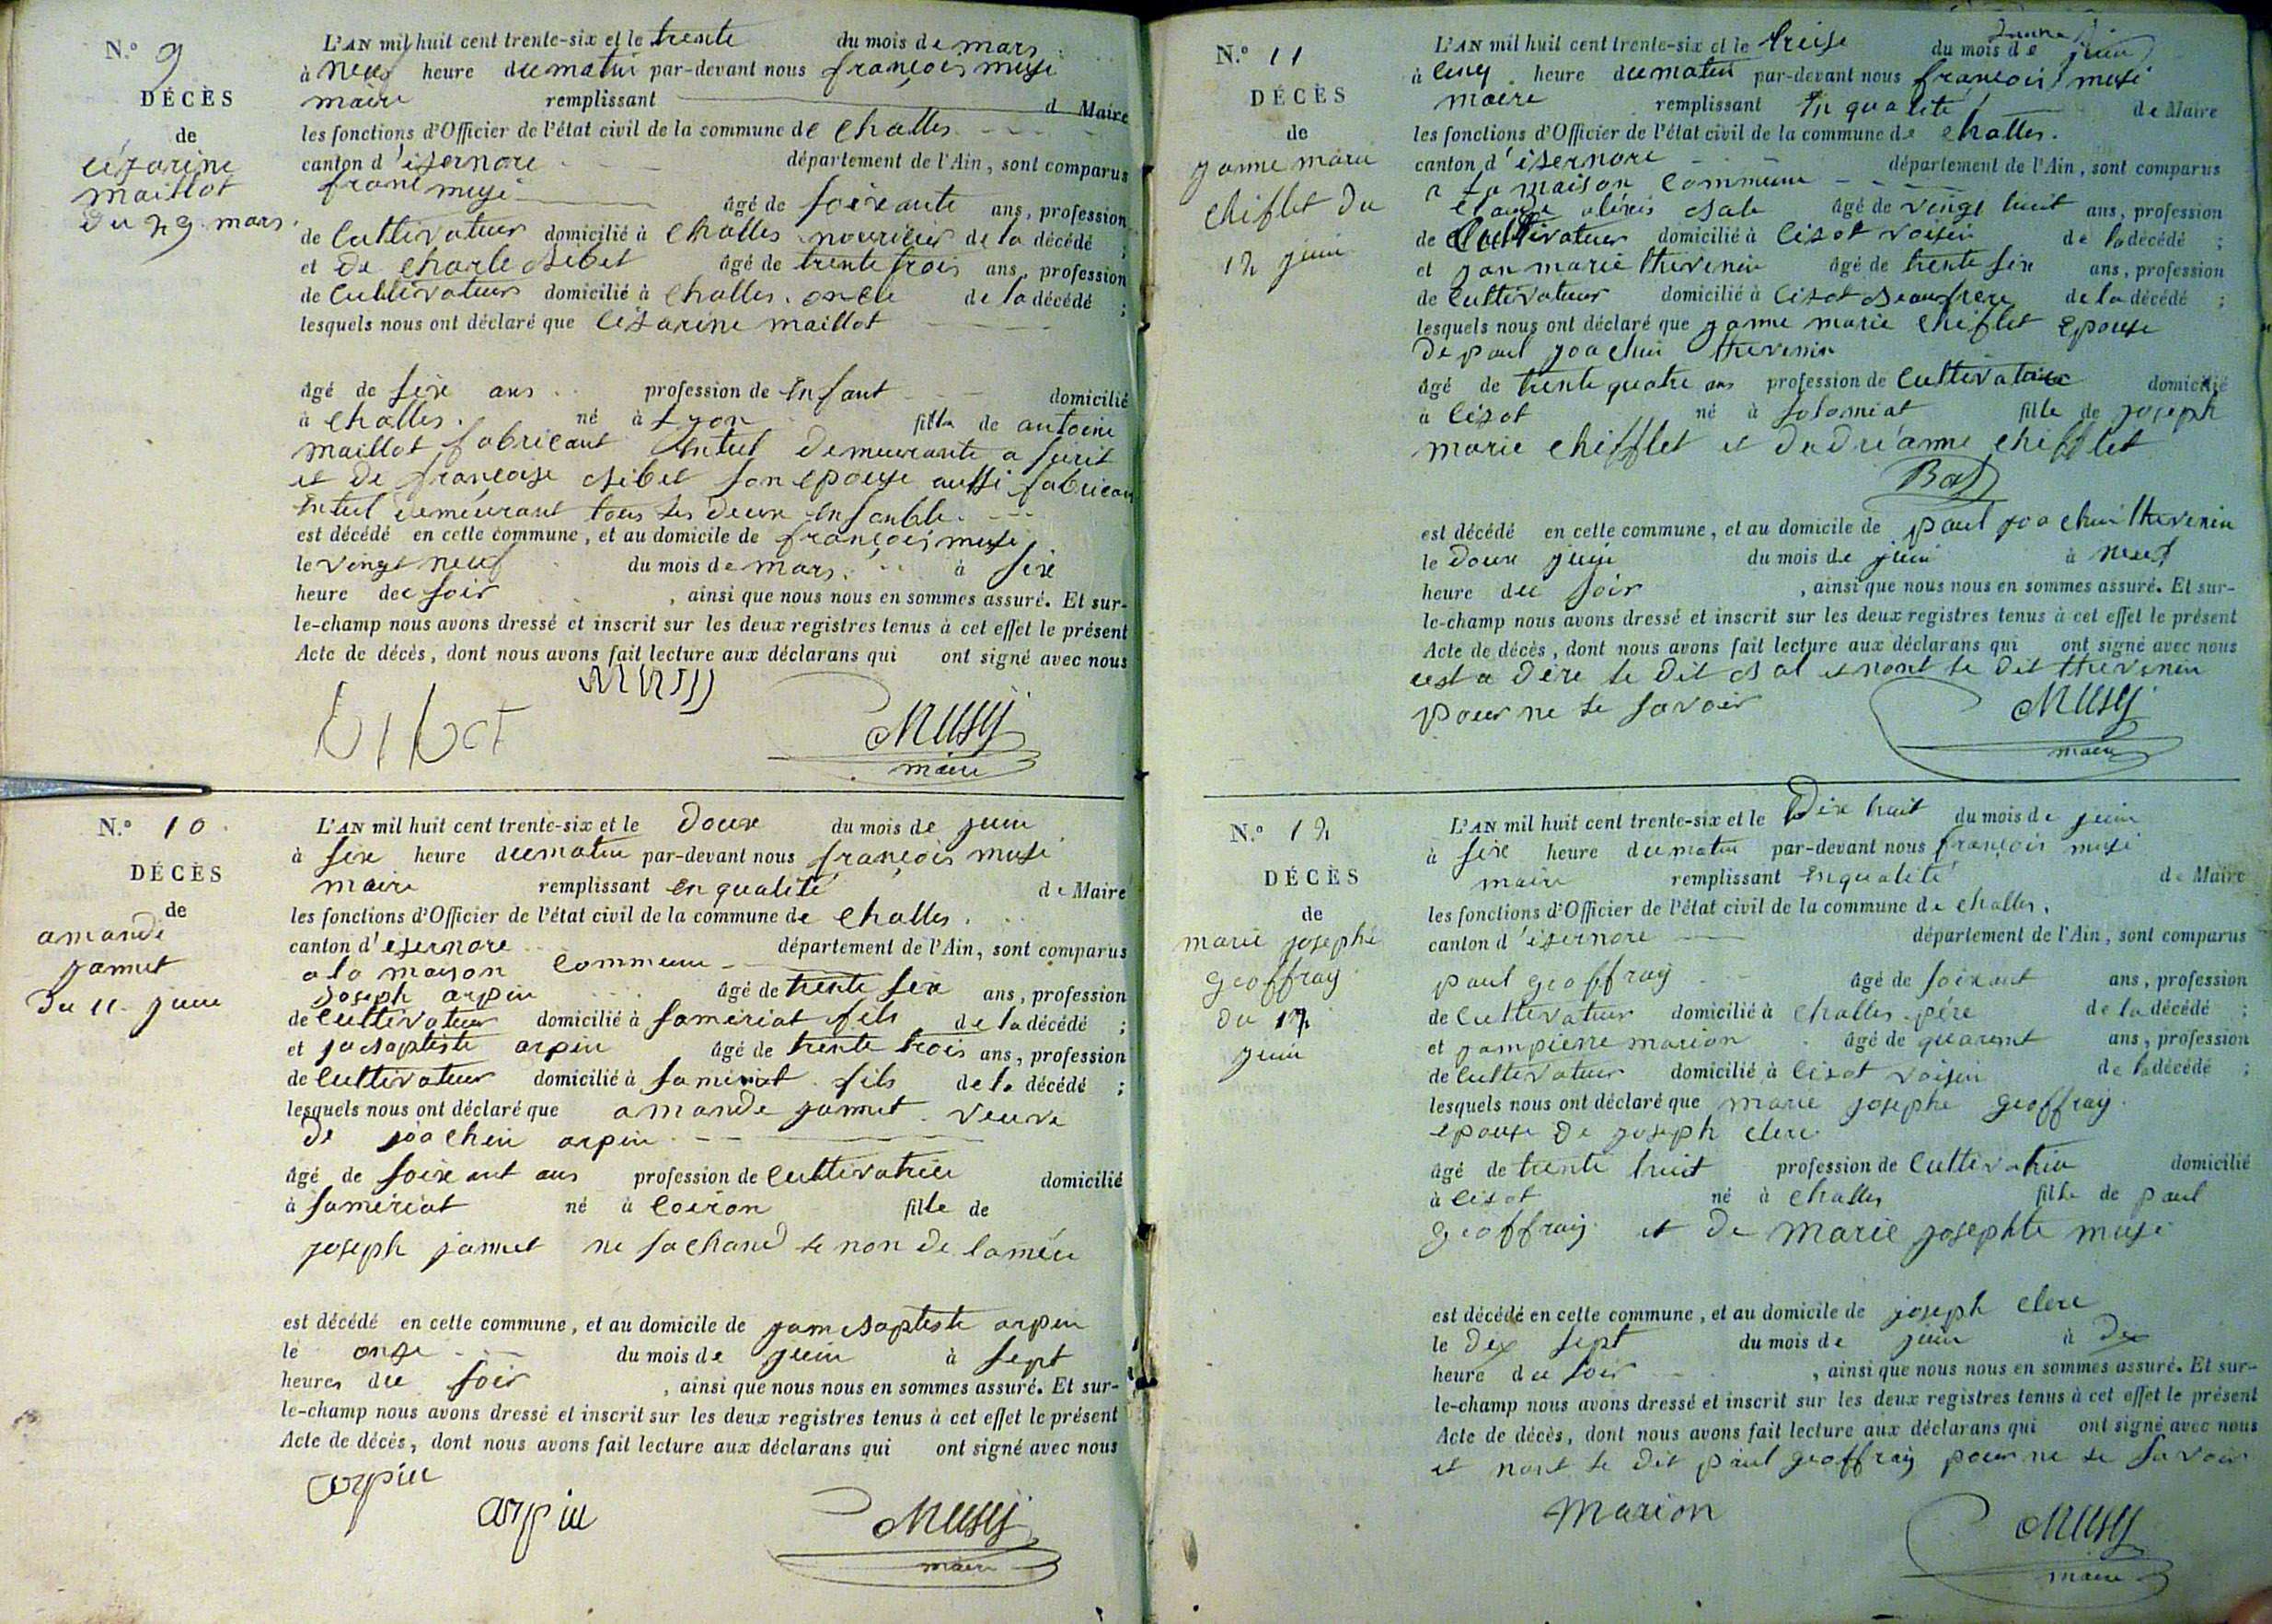 N.º 9
DÉCÈS
de
cézarine
maillot
du 29 mars.
L'AN mil huit cent trente-six et le trente du mois de mars
à neuf heure du matin par-devant nous françois musi
maire remplissant d Maire
les fonctions d'Officier de l'état civil de la commune de challes
canton d'isernore département de l'Ain, sont comparus
musi âgé de soixante ans, profession
de cultivateur domicilié à challes nouricier de la décédé ;
et de charle bibet âgé de trente trois ans, profession
de cultivateur domicilié à challes. oncle de la décédé ;
lesquels nous ont déclaré que cézarine maillot
âgé de sixe ans profession de enfant domicilié
à challes. né à Lyon fille de antoine
maillot fabricant demeurante a
et de françoise bibet son epouse aussi fabrican
demeurant tous les deux ensemble.
est décédé en cette commune, et au domicile de françois musi
le vingt neuf du mois de mars. à sixe
heure du soir , ainsi que nous nous en sommes assuré. Et sur-
le-champ nous avons dressé et inscrit sur les deux registres tenus à cet effet le présent
Acte de décès, dont nous avons fait lecture aux déclarans qui ont signé avec nous
bibet Musy
maire
N.º 10
DÉCÈS
de
amande
jannet
du 11 juin
L'AN mil huit cent trente-six et le douxe du mois de juin
à sixe heure du matin par-devant nous françois musi
maire remplissant en qualité de Maire
les fonctions d'Officier de l'état civil de la commune de challes.
canton d'isernore département de l'Ain, sont comparus
a la maison commune
Joseph arpin âgé de trente sixe ans, profession
de cultivateur domicilié à samériat fils de la décédé ;
et jabaptiste arpin âgé de trente trois ans, profession
de cultivateur domicilié à samériat fils de la décédé ;
lesquels nous ont déclaré que amande jannet veuve
de joachin arpin
âgé de soixant ans profession de cultivatrice domicilié
à samériat né à coiron fille de
joseph jannet ne sachand le non de la mére
est décédé en cette commune, et au domicile de janbaptiste arpin
le onze du mois de juin à sept
heures du soir , ainsi que nous nous en sommes assuré. Et sur-
le-champ nous avons dressé et inscrit sur les deux registres tenus à cet effet le présent
Acte de décès, dont nous avons fait lecture aux déclarans qui ont signé avec nous
arpin
arpin Musy
maire
N.º 11
DÉCÈS
de
janne marie
chiflet du
12 juin
L'AN mil huit cent trente-six et le treise du mois de juin
à cinq heure du matin par-devant nous françois musi
maire remplissant en qualité de Maire
les fonctions d'Officier de l'état civil de la commune de challes.
canton d'isernore département de l'Ain, sont comparus
a la maison commune
claude aléxis bale âgé de vingt huit ans, profession
de cultivateur domicilié à cisot voisin de la décédé ;
et jan marie thevenin âgé de trente sixe ans, profession
de cultivateur domicilié à cisot beaufrere de la décédé ;
lesquels nous ont déclaré que janne marie chiflet epouse
de paul joachin thevenin
âgé de trente quatre ans profession de cultivatrice domicilié
à cisot né à solomiat fille de joseph
marie chifflet et de chifflet
Bal
est décédé en cette commune, et au domicile de paul joachin thevenin
le douxe juin du mois de juin à neuf
heure du soir , ainsi que nous nous en sommes assuré. Et sur-
le-champ nous avons dressé et inscrit sur les deux registres tenus à cet effet le présent
Acte de décès, dont nous avons fait lecture aux déclarans qui ont signé avec nous
cest a dire le dit bal et nont le dit thevenin
pour ne le savoir Musy
maire
N.º 12
DÉCÈS
de
marie josephe
geoffray
du 17
juin
L'AN mil huit cent trente-six et le Dixe huit du mois de juin
à sixe heure du matin par-devant nous françois musi
maire remplissant en qualité de Maire
les fonctions d'Officier de l'état civil de la commune de challes.
canton d'isernore département de l'Ain, sont comparus
paul geoffray âgé de soixant ans, profession
de cultivateur domicilié à challes pére de la décédé ;
et janpierre marion âgé de quarent ans, profession
de cultivateur domicilié à cisot voisin de la décédé ;
lesquels nous ont déclaré que marie josephe geoffray
epouse de joseph clerc
âgé de trente huit profession de cultivatrice domicilié
à cisot né à challes fille de paul
geoffray et de Marie josephte musi
est décédé en cette commune, et au domicile de joseph clerc
le dix sept du mois de juin à dix
heure du soir , ainsi que nous nous en sommes assuré. Et sur-
le-champ nous avons dressé et inscrit sur les deux registres tenus à cet effet le présent
Acte de décès, dont nous avons fait lecture aux déclarans qui ont signé avec nous
et nont le dit paul geoffray pour ne le savoir
Marion Musy
maire